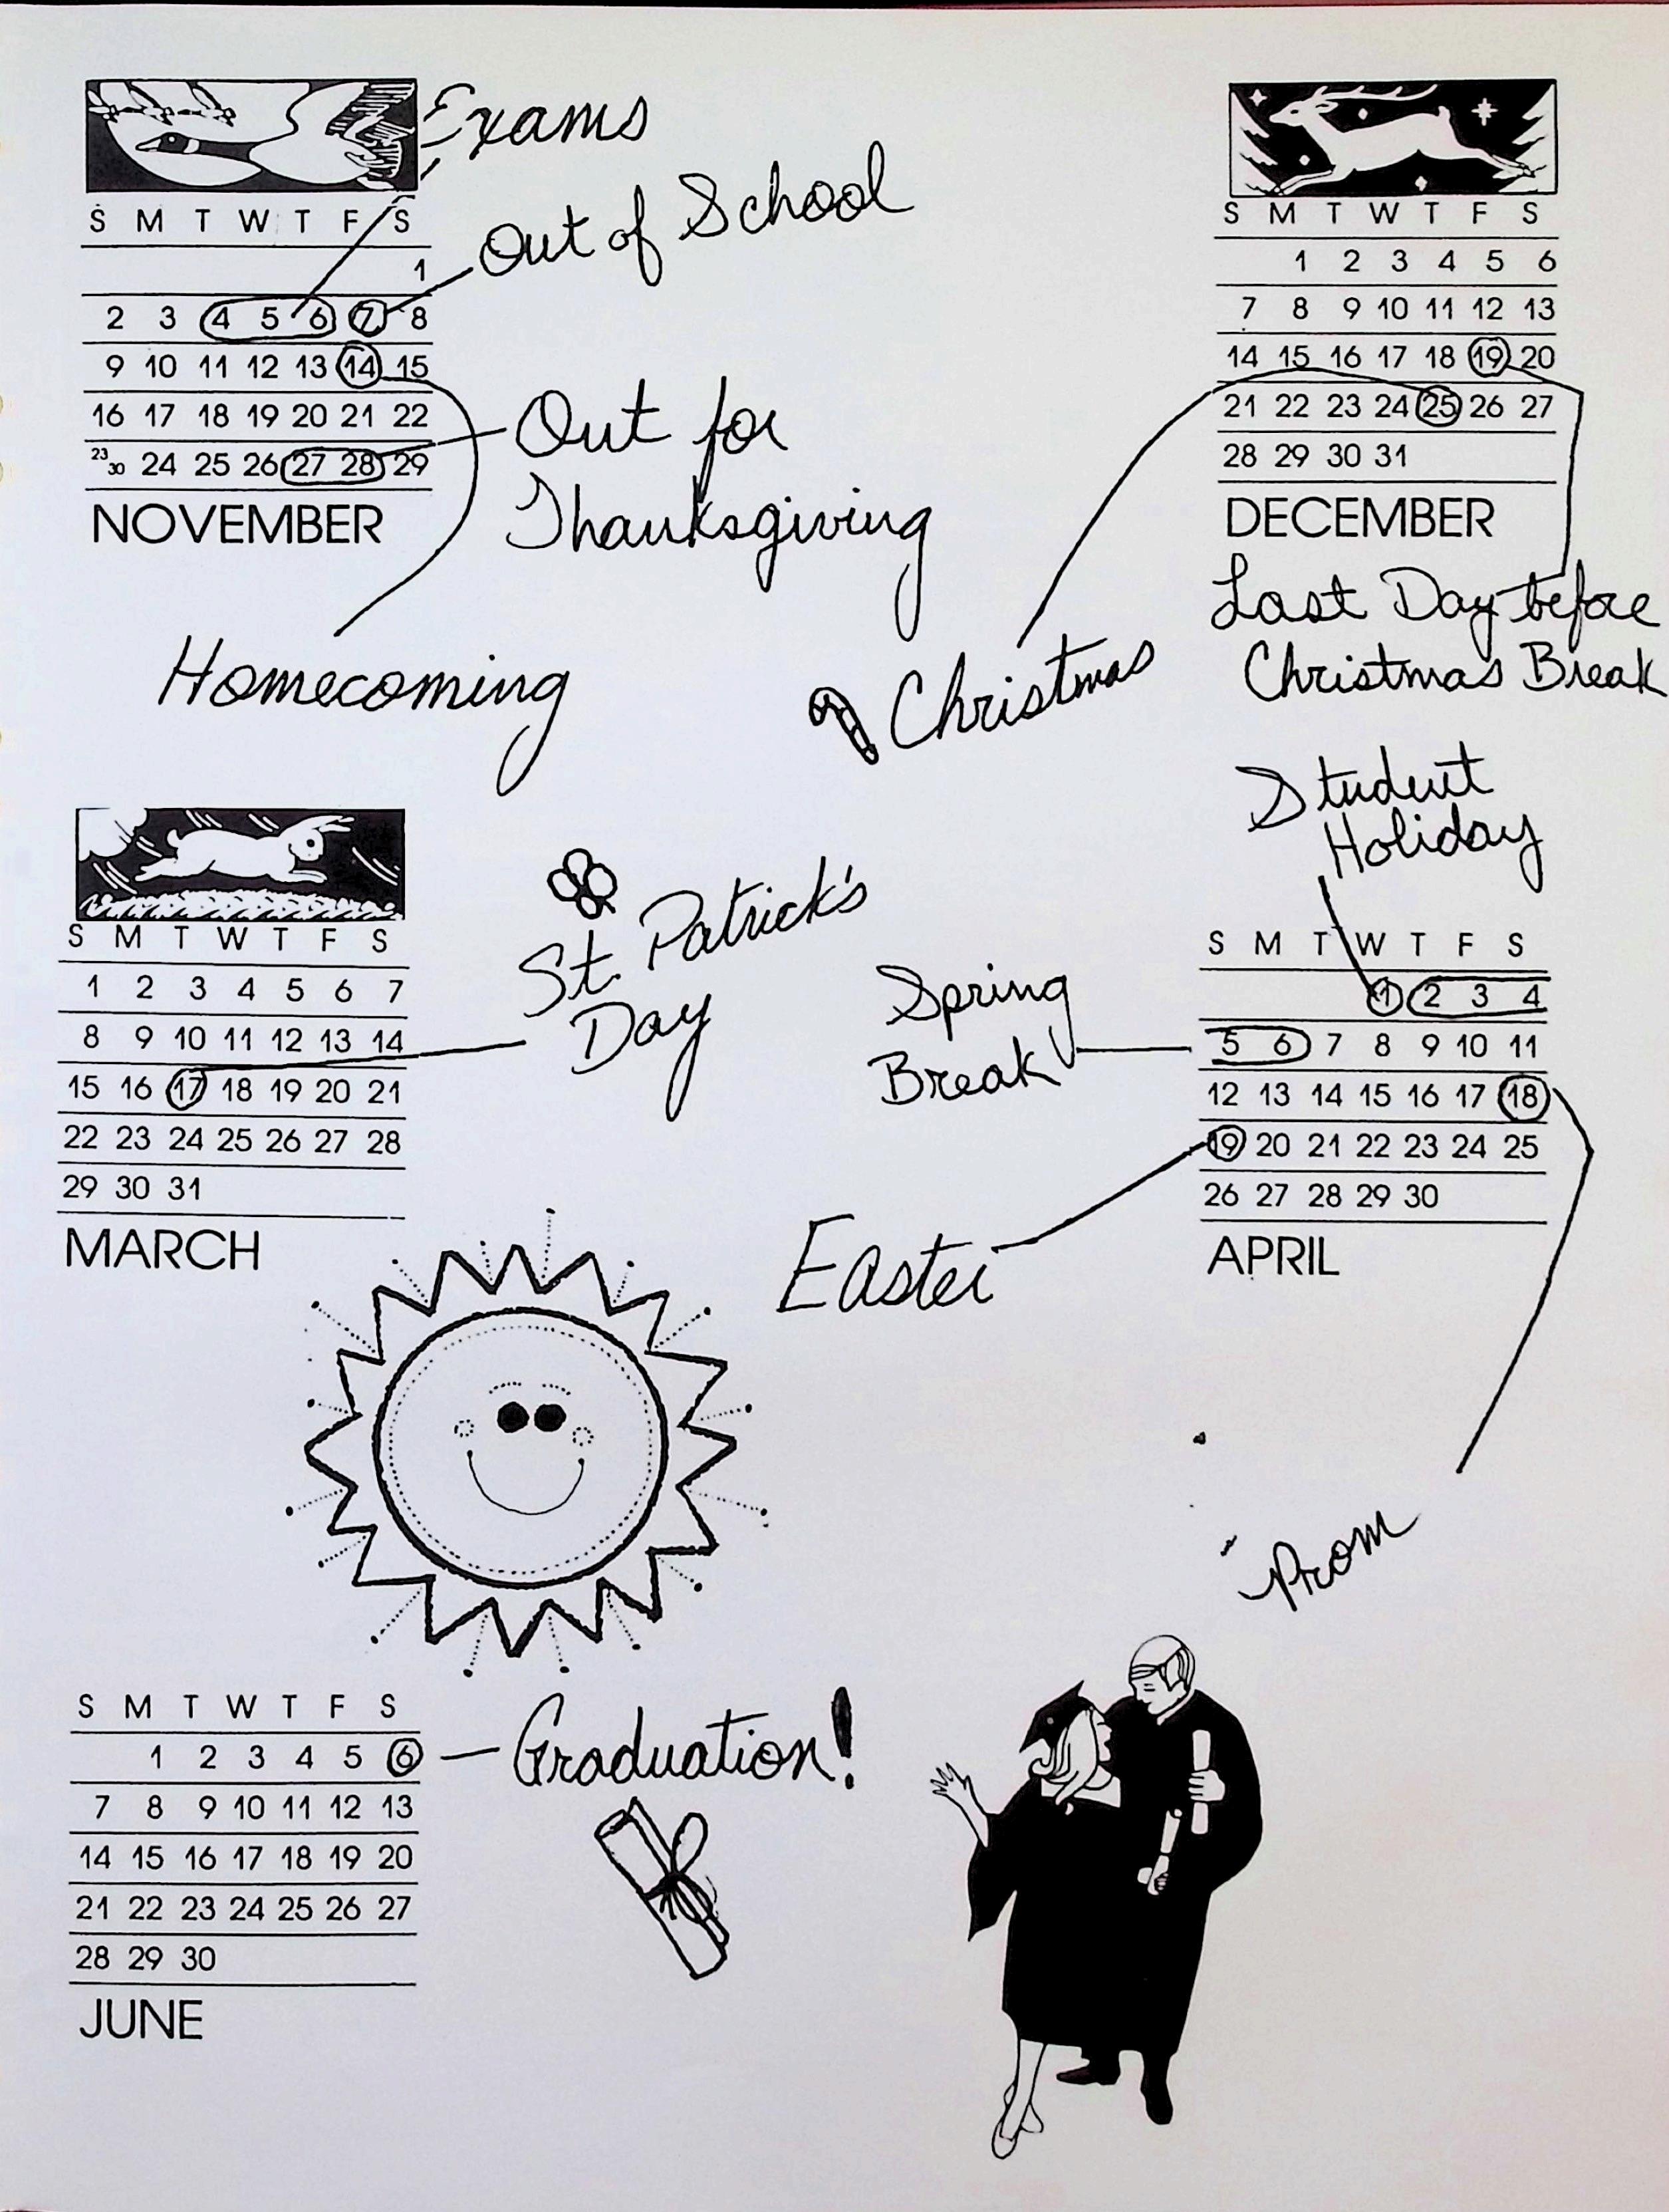 Exams
Out of School
S M T W T F S
1
2 3 4 5 6 7 8
9 10 11 12 13 14 15
16 17 18 19 20 21 22
23 30 24 25 26 27 28 29
NOVEMBER
Out for
Thanksgiving
Homecoming
S M T W T F S
1 2 3 4 5 6
7 8 9 10 11 12 13
14 15 16 17 18 19 20
21 22 23 24 25 26 27
28 29 30 31
DECEMBER
Last Day before
Christmas Break
Christmas
S M T W T F S
1 2 3 4 5 6 7
8 9 10 11 12 13 14
15 16 17 18 19 20 21
22 23 24 25 26 27 28
29 30 31
MARCH
St. Patrick's
Day
Student
Holiday
Spring
Break
S M T W T F S
1 2 3 4
5 6 7 8 9 10 11
12 13 14 15 16 17 18
19 20 21 22 23 24 25
26 27 28 29 30
APRIL
Easter
Prom
S M T W T F S
1 2 3 4 5 6
7 8 9 10 11 12 13
14 15 16 17 18 19 20
21 22 23 24 25 26 27
28 29 30
JUNE
Graduation!